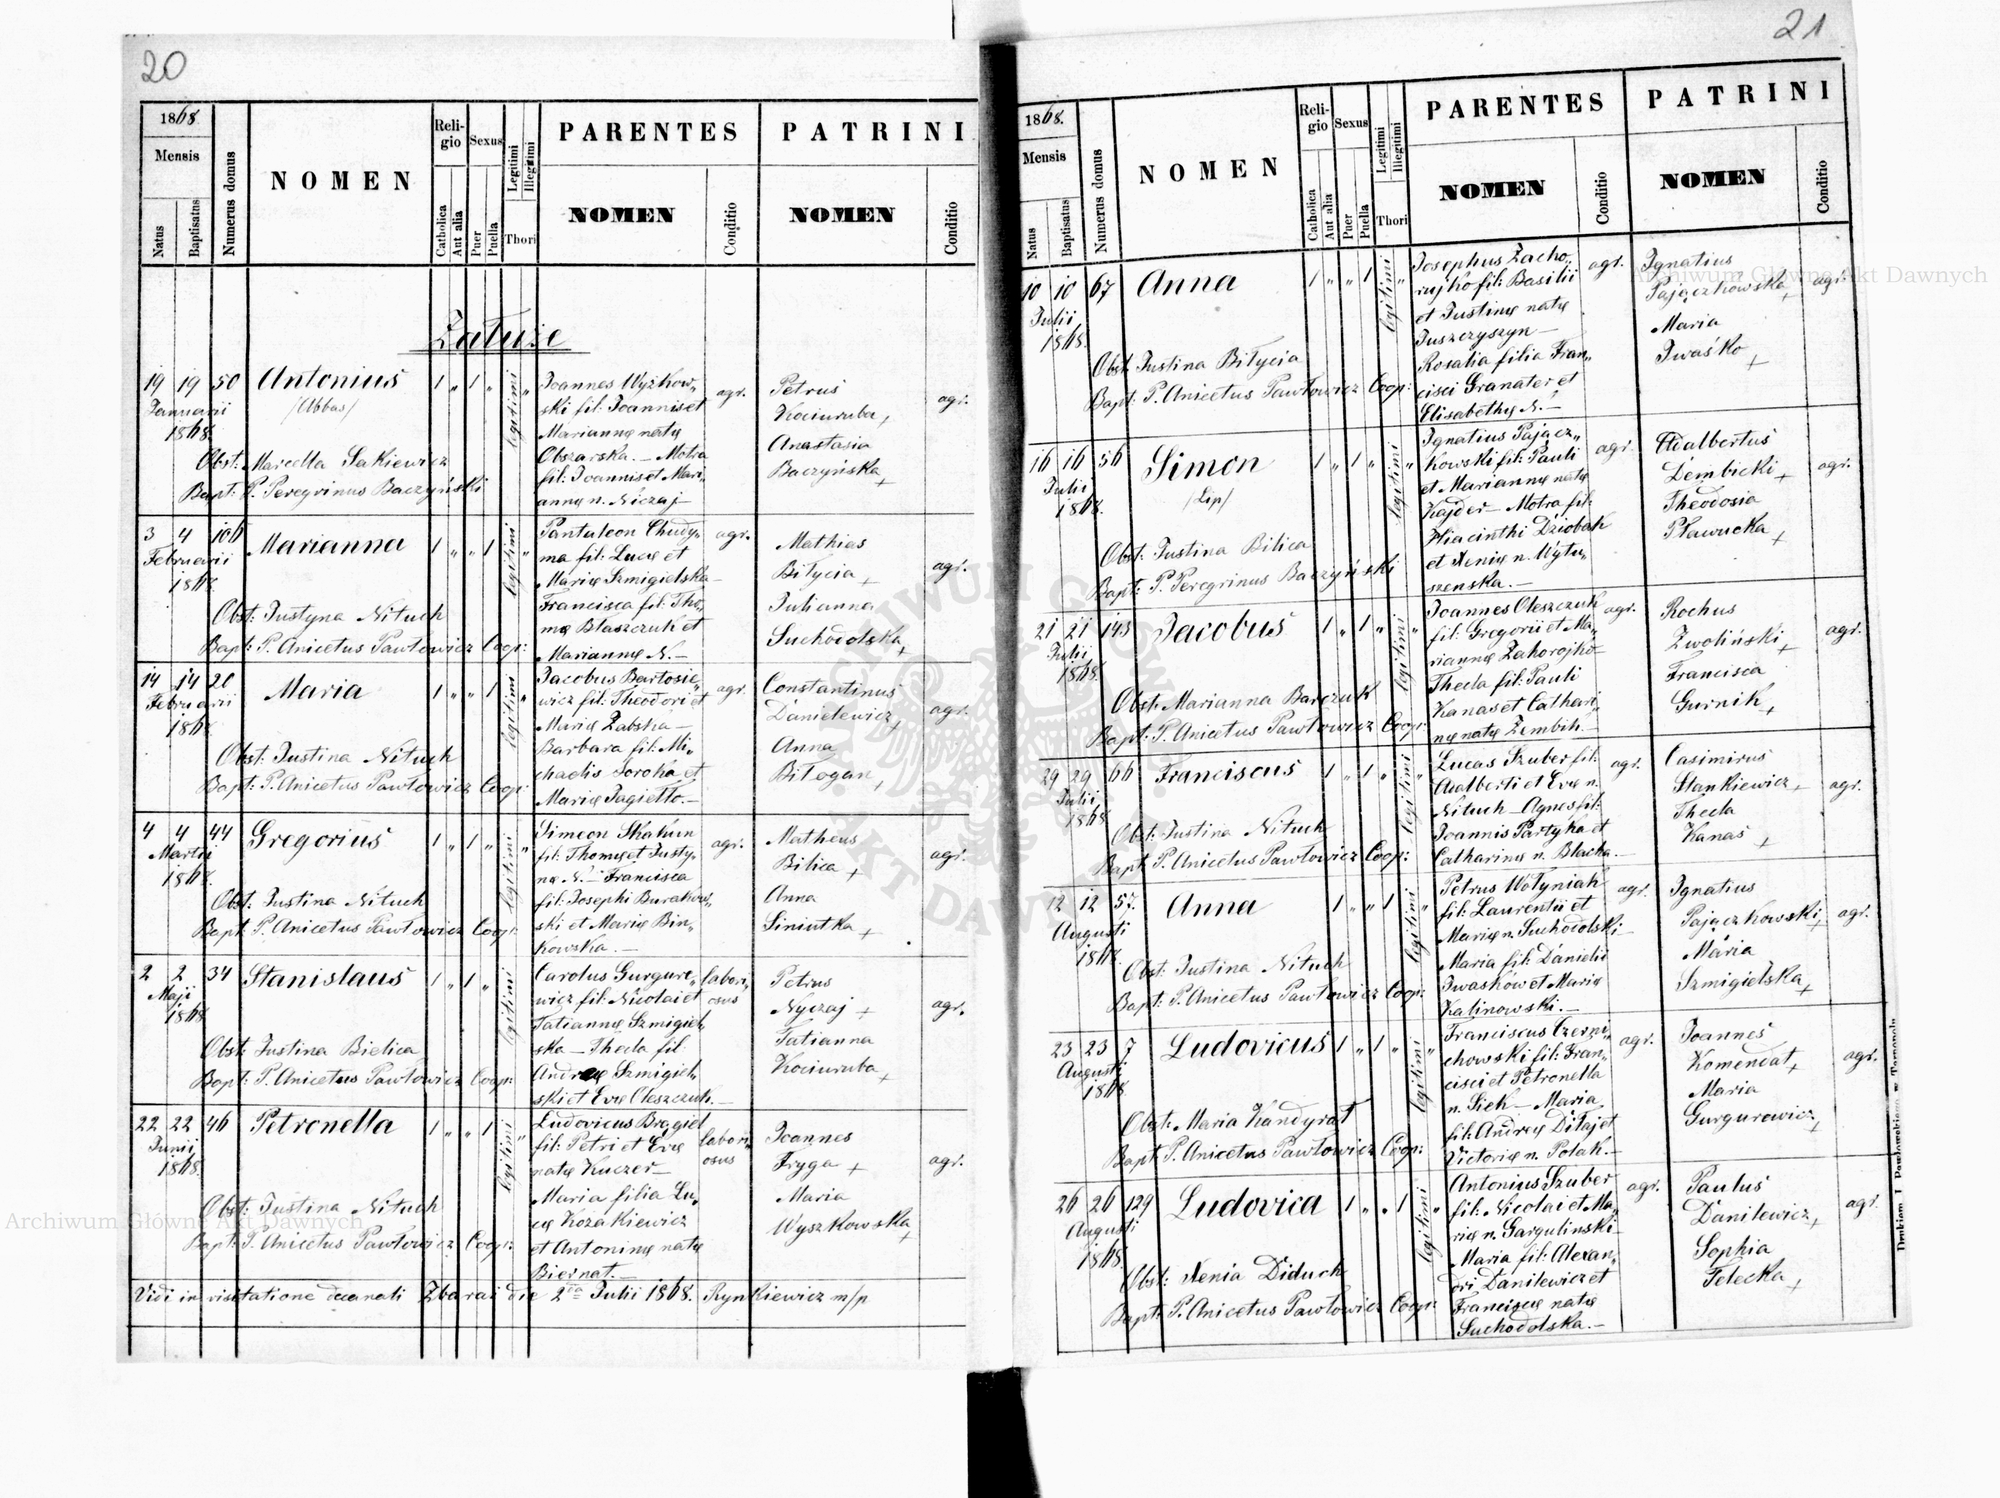 20
1868.
Mensis
Natus
Baptisatus
Numerus domus
NOMEN
Religio
Catholica
Aut alia
Sexus
Puer
Puella
Legitimi
Illegitimi
Thori
PARENTES
NOMEN
Conditio
PATRINI
NOMEN
Conditio
Załuże
19 19 50 Antonius 1 „ 1 „ legitimi „
Januarii
1868.
/Abbas/
Obst: Marcella Sakiewicz
Bapt: P. Peregrinus Baczyński
Joannes Wyżkow„
ski fil: Joannis et
Mariannę natę
Obszarska. — Motra
fil: Joannis et Mari„
annę n. Niczaj —
agr.
Petrus
Kociuruba, +
Anastasia
Baczyńska +
agr.
3 4 106 Marianna 1 „ „ 1 legitimi „
Februarii
1868.
Obst: Justyna Nituch
Bapt: P. Anicetus Pawłowicz Coop:
Pantaleon Chudy„
ma fil: Lucę et
Marię Szmigielska —
Francisca fil: Tho„
mę Błaszczuk et
Mariannę N. —
agr.
Mathias
Bitycia +
Julianna
Suchodolska +
agr.
14 14 20 Maria 1 „ „ 1 legitimi „
Februarii
1868.
Obst: Justina Nituch
Bapt: P. Anicetus Pawłowicz Coop:
Jacobus Bartosie„
wicz fil: Theodori et
Marię Zabska —
Barbara fil: Mi„
chaelis Soroka et
Marię Jagiełło. —
agr.
Constantinus
Danielewicz, +
Anna
Biłogan, +
agr.
4 4 44 Gregorius 1 „ 1 „ legitimi „
Martii
1868.
Obst: Justina Nituch
Bapt: P. Anicetus Pawłowicz Coop:
Simeon Skakun
fil: Thomę et Justy„
nę N. — Francisca
fil: Josephi Burakow„
ski et Marię Bin„
kowska. —
agr.
Matheus
Bilica, +
Anna
Siniutka +
agr.
2 2 34 Stanislaus 1 „ 1 „ legitimi
Maji
1868.
Obst: Justina Bielica
Bapt: P. Anicetus Pawłowicz Coop:
Carolus Gurgure„
wicz fil: Nicolai et
Tatiannę Szmigiel„
ska — Thecla fil:
Andreę Szmigiel„
ski et Evę Oleszczuk. —
labori„
osus
Petrus
Nyczaj +
Tatianna
Kociuruba, +
agr.
22 22 46 Petronella 1 „ „ 1 legitimi „
Junii
1868.
Obst: Justina Nituch
Bapt: P. Anicetus Pawłowicz Coop:
Ludovicus Brągiel
fil: Petri et Evę
natę Kuczer —
Maria filia Lu„
cę Kozakiewicz
et Antoninę natę
Biernat. —
labori„
osus
Joannes
Fryga +
Maria
Wyszkowska +
agr.
Vidi in visitatione decanali Zbaraż die 2da Julii 1868. Rynkiewicz m/p
21
1868.
Mensis
Natus
Baptisatus
Numerus domus
NOMEN
Religio
Catholica
Aut alia
Sexus
Puer
Puella
Legitimi
Illegitimi
Thori
PARENTES
NOMEN
Conditio
PATRINI
NOMEN
Conditio
10 10 67 Anna 1 „ „ 1 legitimi „
Julii
1868.
Obst: Justina Bitycia
Bapt: P. Anicetus Pawłowicz Coop:
Josephus Zacho„
rujko fil: Basilii
et Justinę natę
Juszczyszyn —
Rosalia filia Fran„
cisci Granater et
Elisabethę N. —
agr.
Ignatius
Pajączkowska, +
Maria
Iwaśko +
agr.
16 16 56 Simon 1 „ 1 „ legitimi „
Julii
1868.
/Lip/
Obst: Justina Bilica
Bapt: P. Peregrinus Baczyński
Ignatius Pającz„
kowski fil: Pauli
et Mariannę natę
Kajder — Motra fil:
Hiacinthi Dziobak
et Xenię n. Wytu„
szenska. —
agr.
Adalbertus
Dembicki, +
Theodosia
Pławucka, +
agr.
21 21 143 Jacobus 1 „ 1 „ legitimi „
Julii
1868.
Obst: Marianna Barczuk
Bapt: P. Anicetus Pawłowicz Coop:
Joannes Oleszczuk
fil: Gregorii et Ma„
riannę Zahorojko
Thecla fil: Pauli
Kanas et Cathari„
nę natę Zembik. —
agr.
Rochus
Zwoliński, +
Francisca
Gurnik, +
agr.
29 29 66 Franciscus 1 „ 1 „ legitimi „
Julii
1868
Obst: Justina Nituch
Bapt: P. Anicetus Pawłowicz Coop:
Lucas Szuber fil:
Adalberti et Evę n.
Nituch — Agnes fil:
Joannis Partyka et
Catharinę n. Blacha. —
agr.
Casimirus
Stankiewicz, +
Thecla
Kanas +
agr.
12 12 57. Anna 1 „ „ 1 legitimi „
Augusti
1868.
Obst: Justina Nituch
Bapt: P. Anicetus Pawłowicz Coop:
Petrus Wołyniak
fil: Laurentii et
Marię n. Suchodolski —
Maria fil: Danielis
Iwaśków et Marię
Kalinowski. —
agr.
Ignatius
Pajączkowski, +
Maria
Szmigielska, +
agr.
23 23 7 Ludovicus 1 „ 1 „ legitimi „
Augusti
1868
Obst: Maria Kandyrał
Bapt: P. Anicetus Pawłowicz Coop:
Franciscus Czerni„
chowski fil: Fran„
cisci et Petronella
n. Sick — Maria,
fil: Andreę Diłaj et
Victorię n. Polak. —
agr.
Joannes
Komendat, +
Maria
Gurgurewicz, +
agr.
26 26 129 Ludovica 1 „ „ 1 legitimi „
Augusti
1868.
Obst: Xenia Diduch
Bapt: P. Anicetus Pawłowicz Coop:
Antonius Szuber
fil: Nicolai et Ma„
rię n. Gargulinski —
Maria fil: Alexan„
dri Danilewicz et
Franciscę natę
Suchodolska. —
agr.
Paulus
Danilewicz, +
Sophia
Felecka, +
agr.
Drukiem J. Pawłowskiego w Tarnopolu
Archiwum Główne Akt Dawnych
Archiwum Główne Akt Dawnych
ARCHIWUM GŁÓWNE AKT DAWNYCH